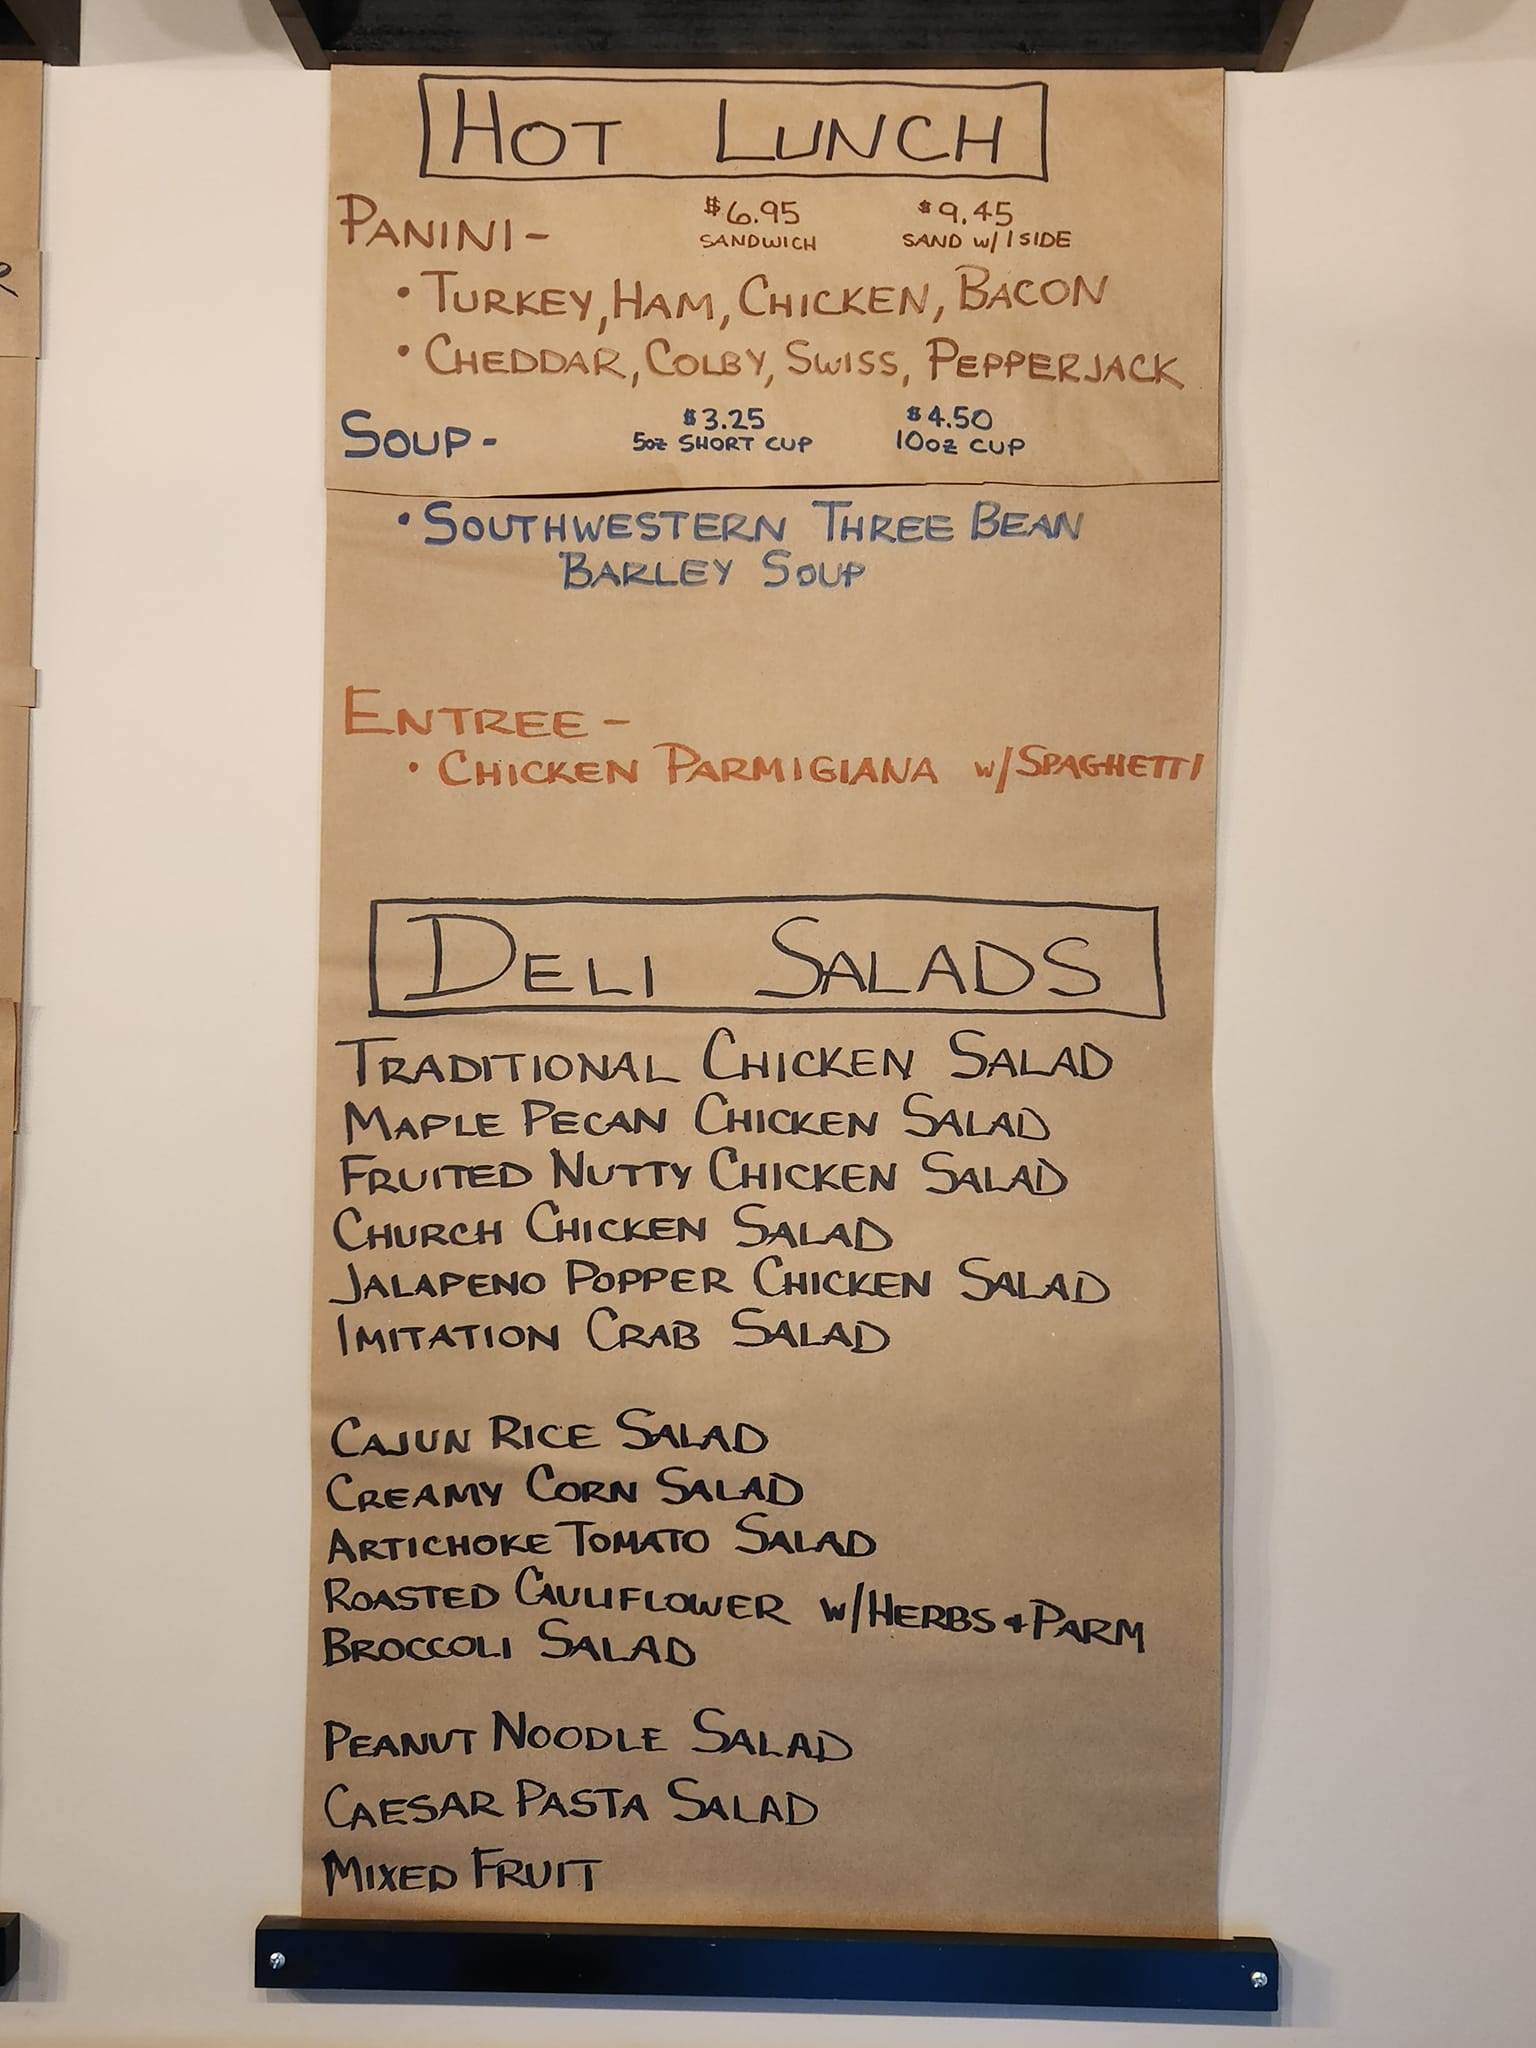 HOT LUNCH
PANINI- $6.95 $9.45
SANDWICH SAND W/1 SIDE
• TURKEY, HAM, CHICKEN, BACON
• CHEDDAR, COLBY, SWISS, PEPPERJACK
SOUP- $3.25 $4.50
5oz SHORT CUP 10oz CUP
• SOUTHWESTERN THREE BEAN
BARLEY SOUP
ENTREE-
• CHICKEN PARMIGIANA W/SPAGHETTI
DELI SALADS
TRADITIONAL CHICKEN SALAD
MAPLE PECAN CHICKEN SALAD
FRUITED NUTTY CHICKEN SALAD
CHURCH CHICKEN SALAD
JALAPENO POPPER CHICKEN SALAD
IMITATION CRAB SALAD
CAJUN RICE SALAD
CREAMY CORN SALAD
ARTICHOKE TOMATO SALAD
ROASTED CAULIFLOWER W/HERBS + PARM
BROCCOLI SALAD
PEANUT NOODLE SALAD
CAESAR PASTA SALAD
MIXED FRUIT